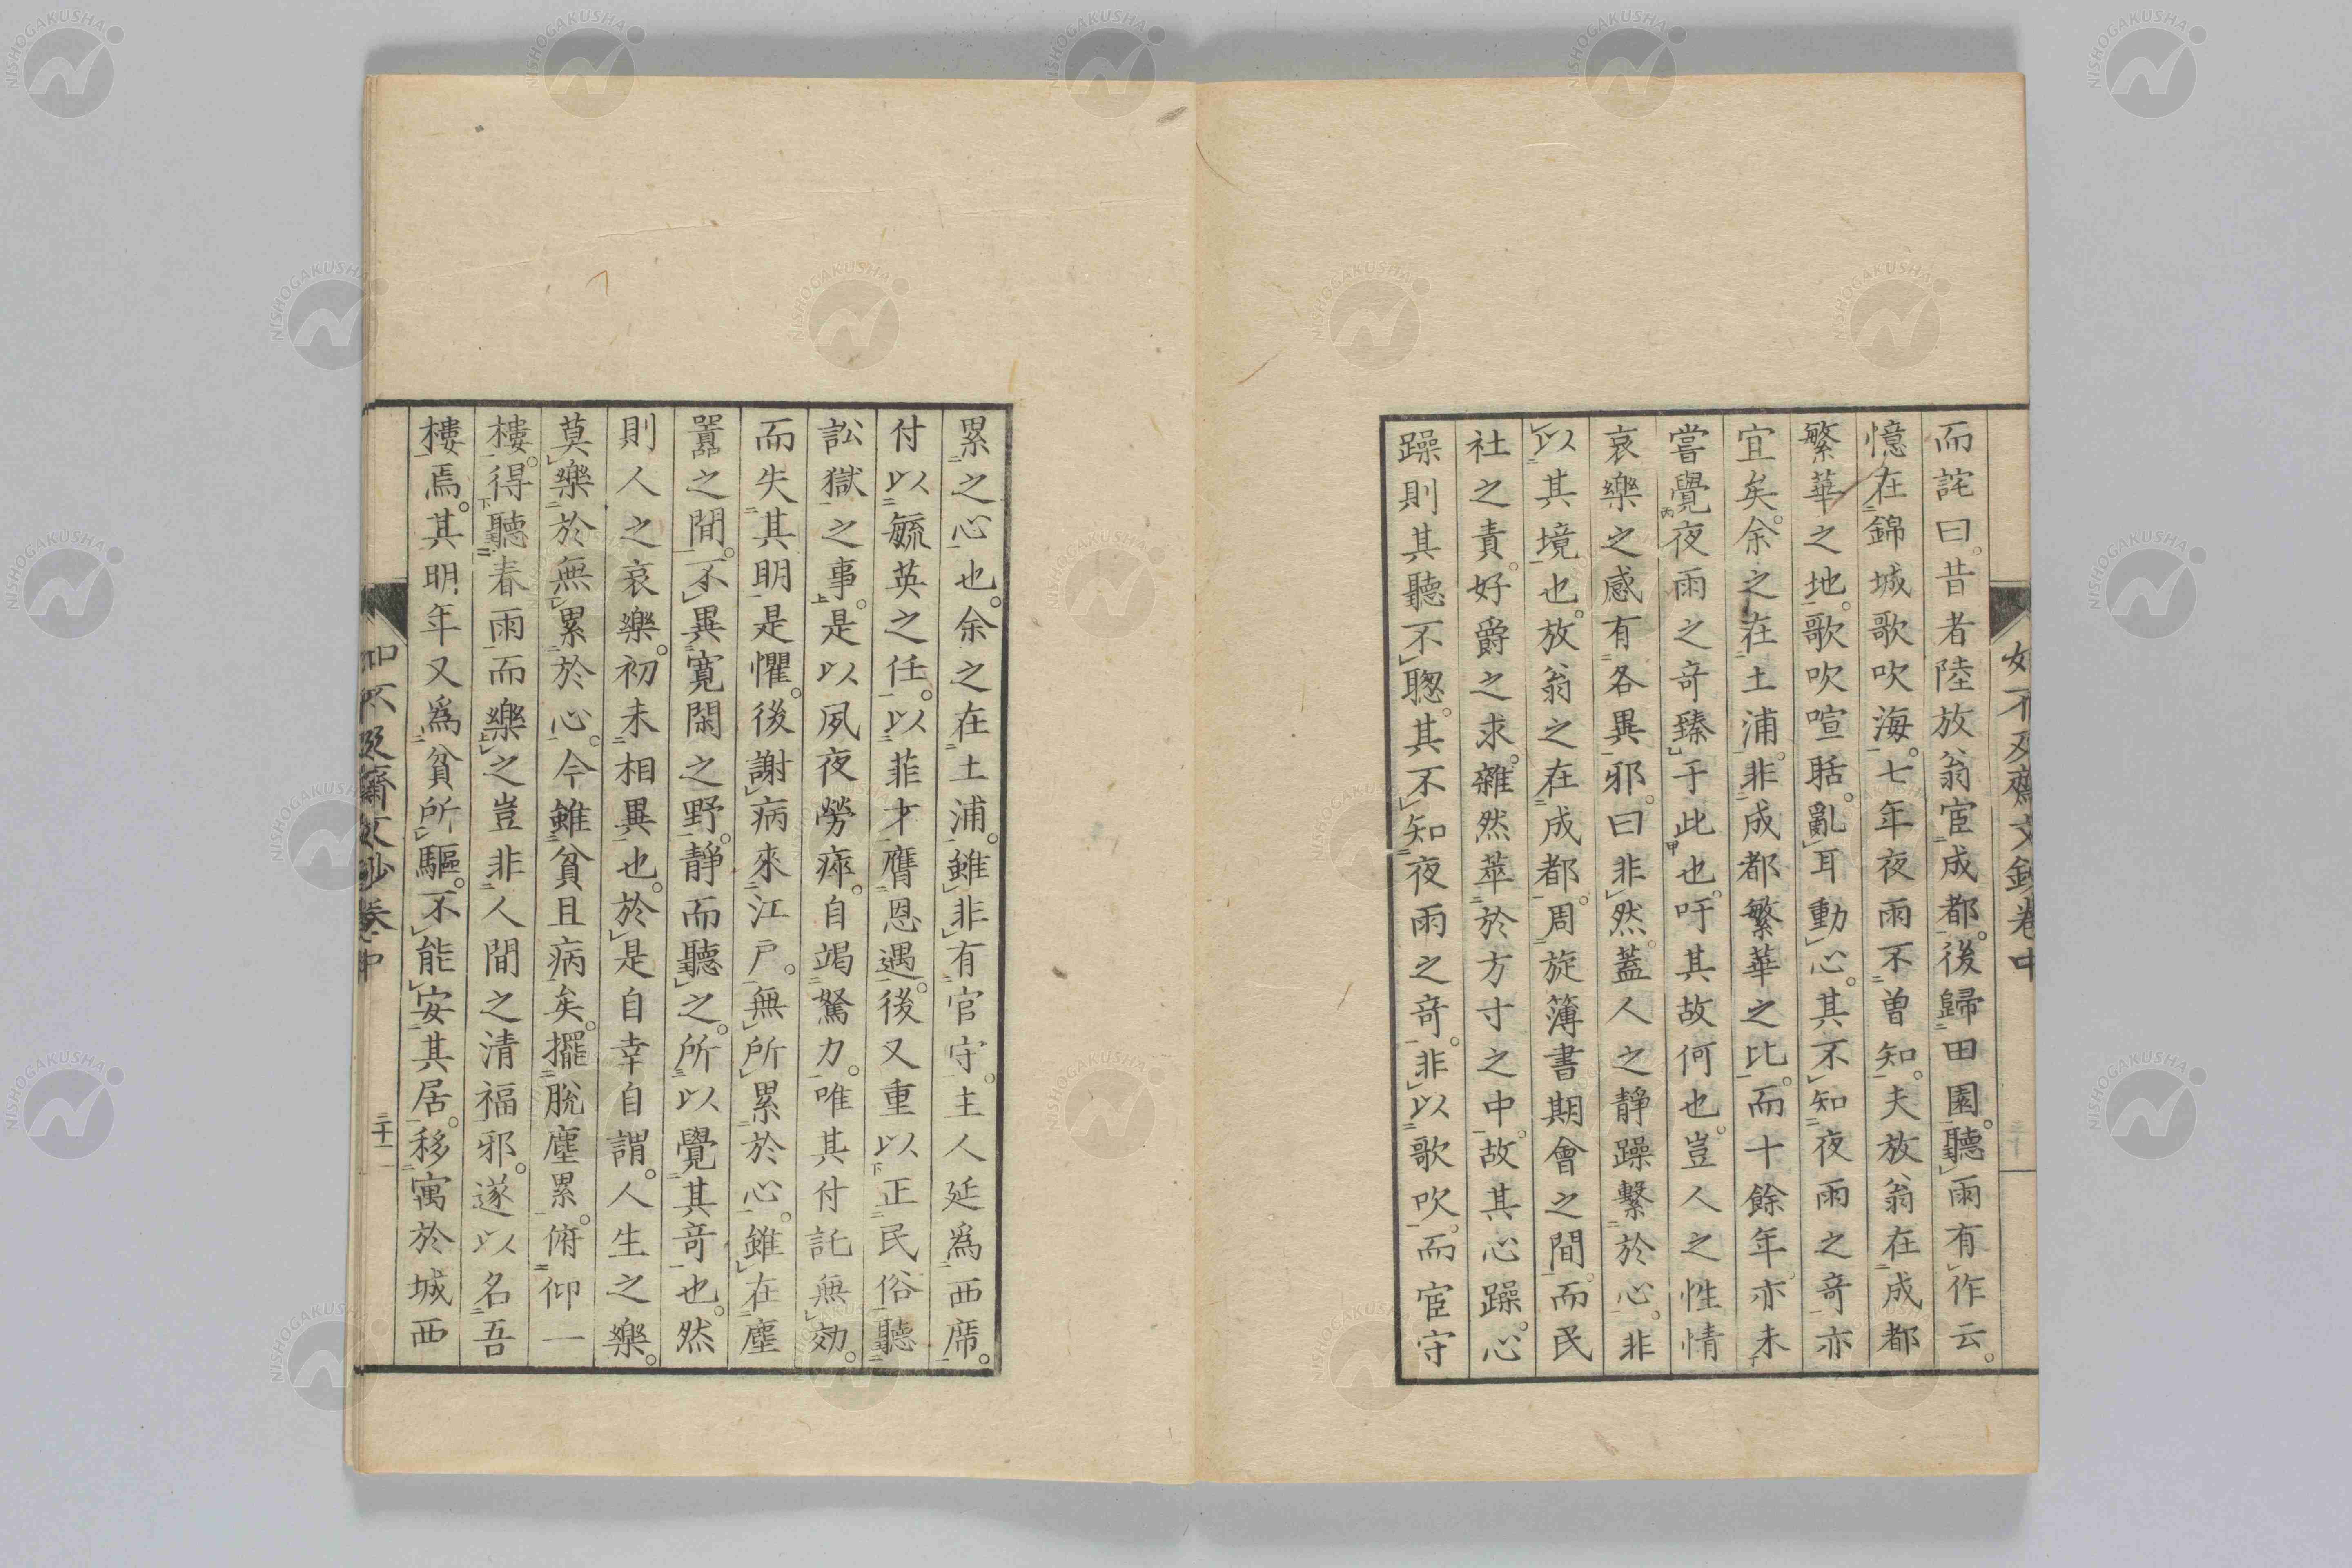 如不及齋文鈔卷中
而詫曰。昔者陸放翁宦成都。後歸田園。聽雨有作云。
憶在錦城歌吹海。七年夜雨不曾知。夫放翁在成都
繁華之地。歌吹喧聒。亂耳動心。其不知夜雨之奇亦
宜矣。余之在土浦。非成都繁華之比。而十餘年。亦未
嘗覺夜雨之奇臻于此也。吁其故何也。豈人之性情
哀樂之感有各異邪。曰非然。蓋人之靜躁繫於心。非
以其境也。放翁之在成都。周旋簿書期會之間。而民
社之責。好爵之求。雜然萃於方寸之中。故其心躁。心
躁則其聽不聰。其不知夜雨之奇。非以歌吹。而宦守
累之心也。余之在土浦。雖非有官守。主人延爲西席。
付以毓英之任。以菲才膺恩遇。後又重以正民俗聽
訟獄之事。是以夙夜勞瘁。自竭駑力。唯其付託無効。
而失其明是懼。後謝病來江戶。無所累於心。雖在塵
囂之間。不異寬閑之野。靜而聽之。所以覺其奇也。然
則人之哀樂。初未相異也。於是自幸自謂。人生之樂。
莫樂於無累於心。今雖貧且病矣。擺脫塵累。俯仰一
樓。得聽春雨而樂之豈非人間之清福邪。遂以名吾
樓焉。其明年又爲貧所驅。不能安其居。移寓於城西
如不及齋文鈔卷中
二十一
NISHOGAKUSHA